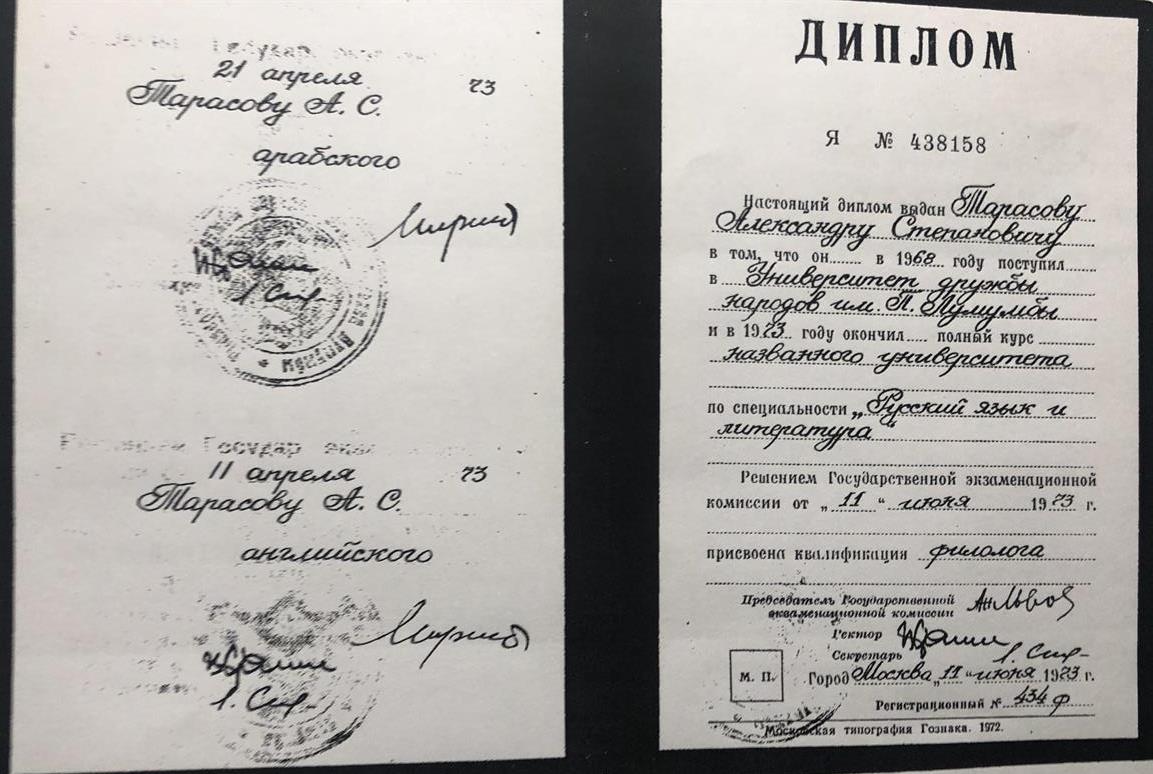 21 апреля 73
Тарасову А. С.
арабского
Государ
11 апреля 73
Тарасову А. С.
английского
ДИПЛОМ
Я № 438158
Настоящий диплом выдан Тарасову
Александру Степановичу
в том, что он в 1968 году поступил
в Университет дружбы
народов им. П. Лумумбы
и в 1973 году окончил полный курс
названного университета
по специальности „Русский язык и
литература“
Решением Государственной экзаменационной
комиссии от „11“ июня 1973 г.
присвоена квалификация филолога
Председатель Государственной
экзаменационной комиссии
Ректор
Секретарь
М. П. Город Москва „11“ июня 1973 г.
Регистрационный № 434 ф
Московская типография Гознака. 1972.